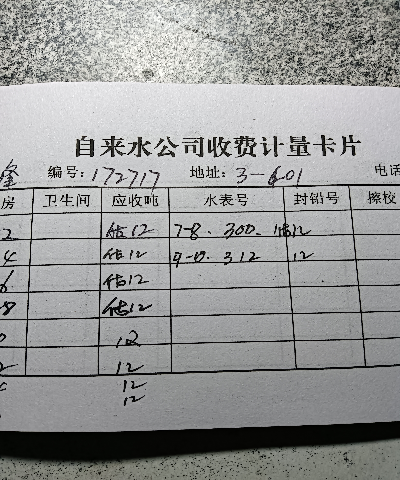 自来水公司收费计量卡片
编号: 172717 地址: 3-601 电话
房 卫生间 应收吨 水表号 封铅号 擦校
2 估12 7-8. 300. 估12
4 估12 9-0. 312 12
6 估12
8 估12
0 12
2 12
12
12